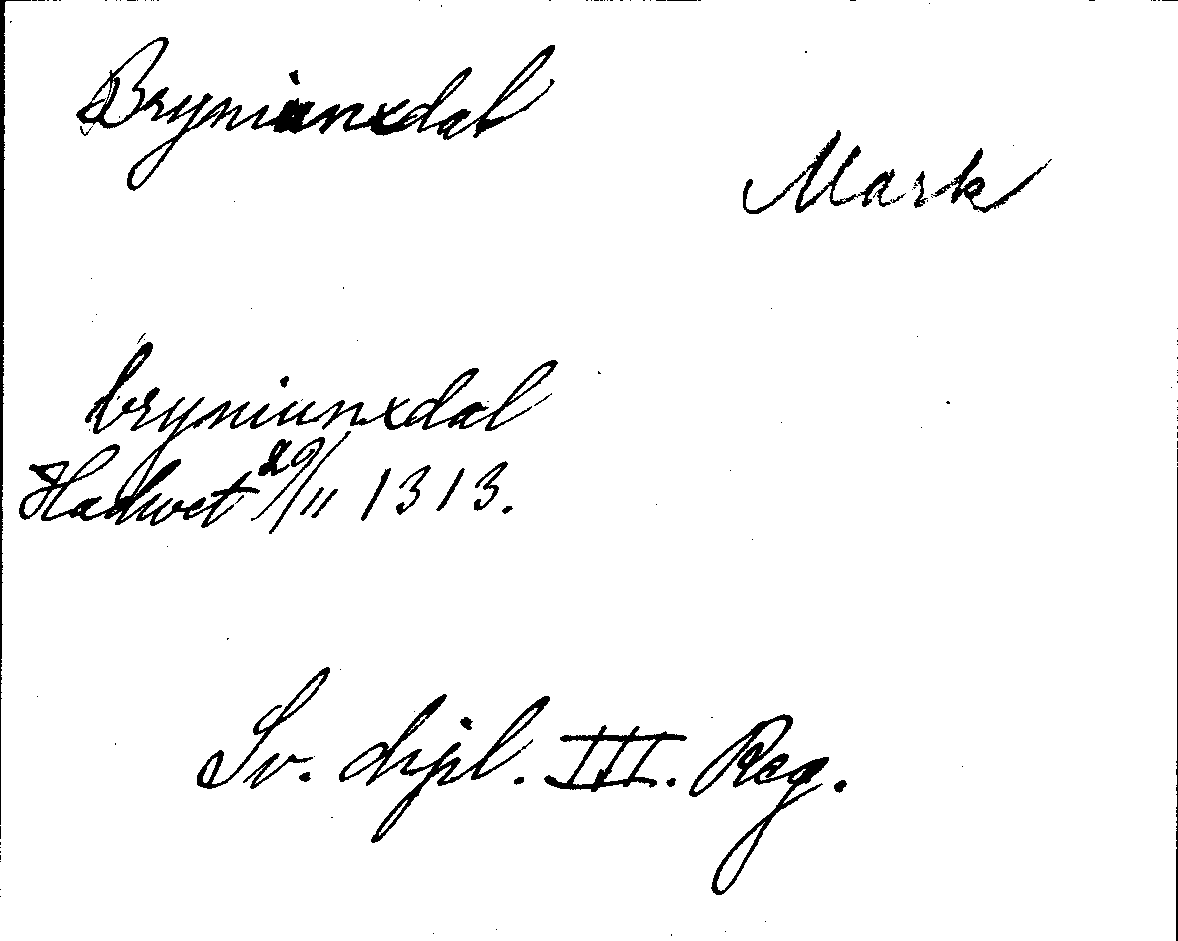 Bryniunxdal
Mark
bryniunxdal
Hadwet 29/11 1313.
Sv. dipl. III. Reg.